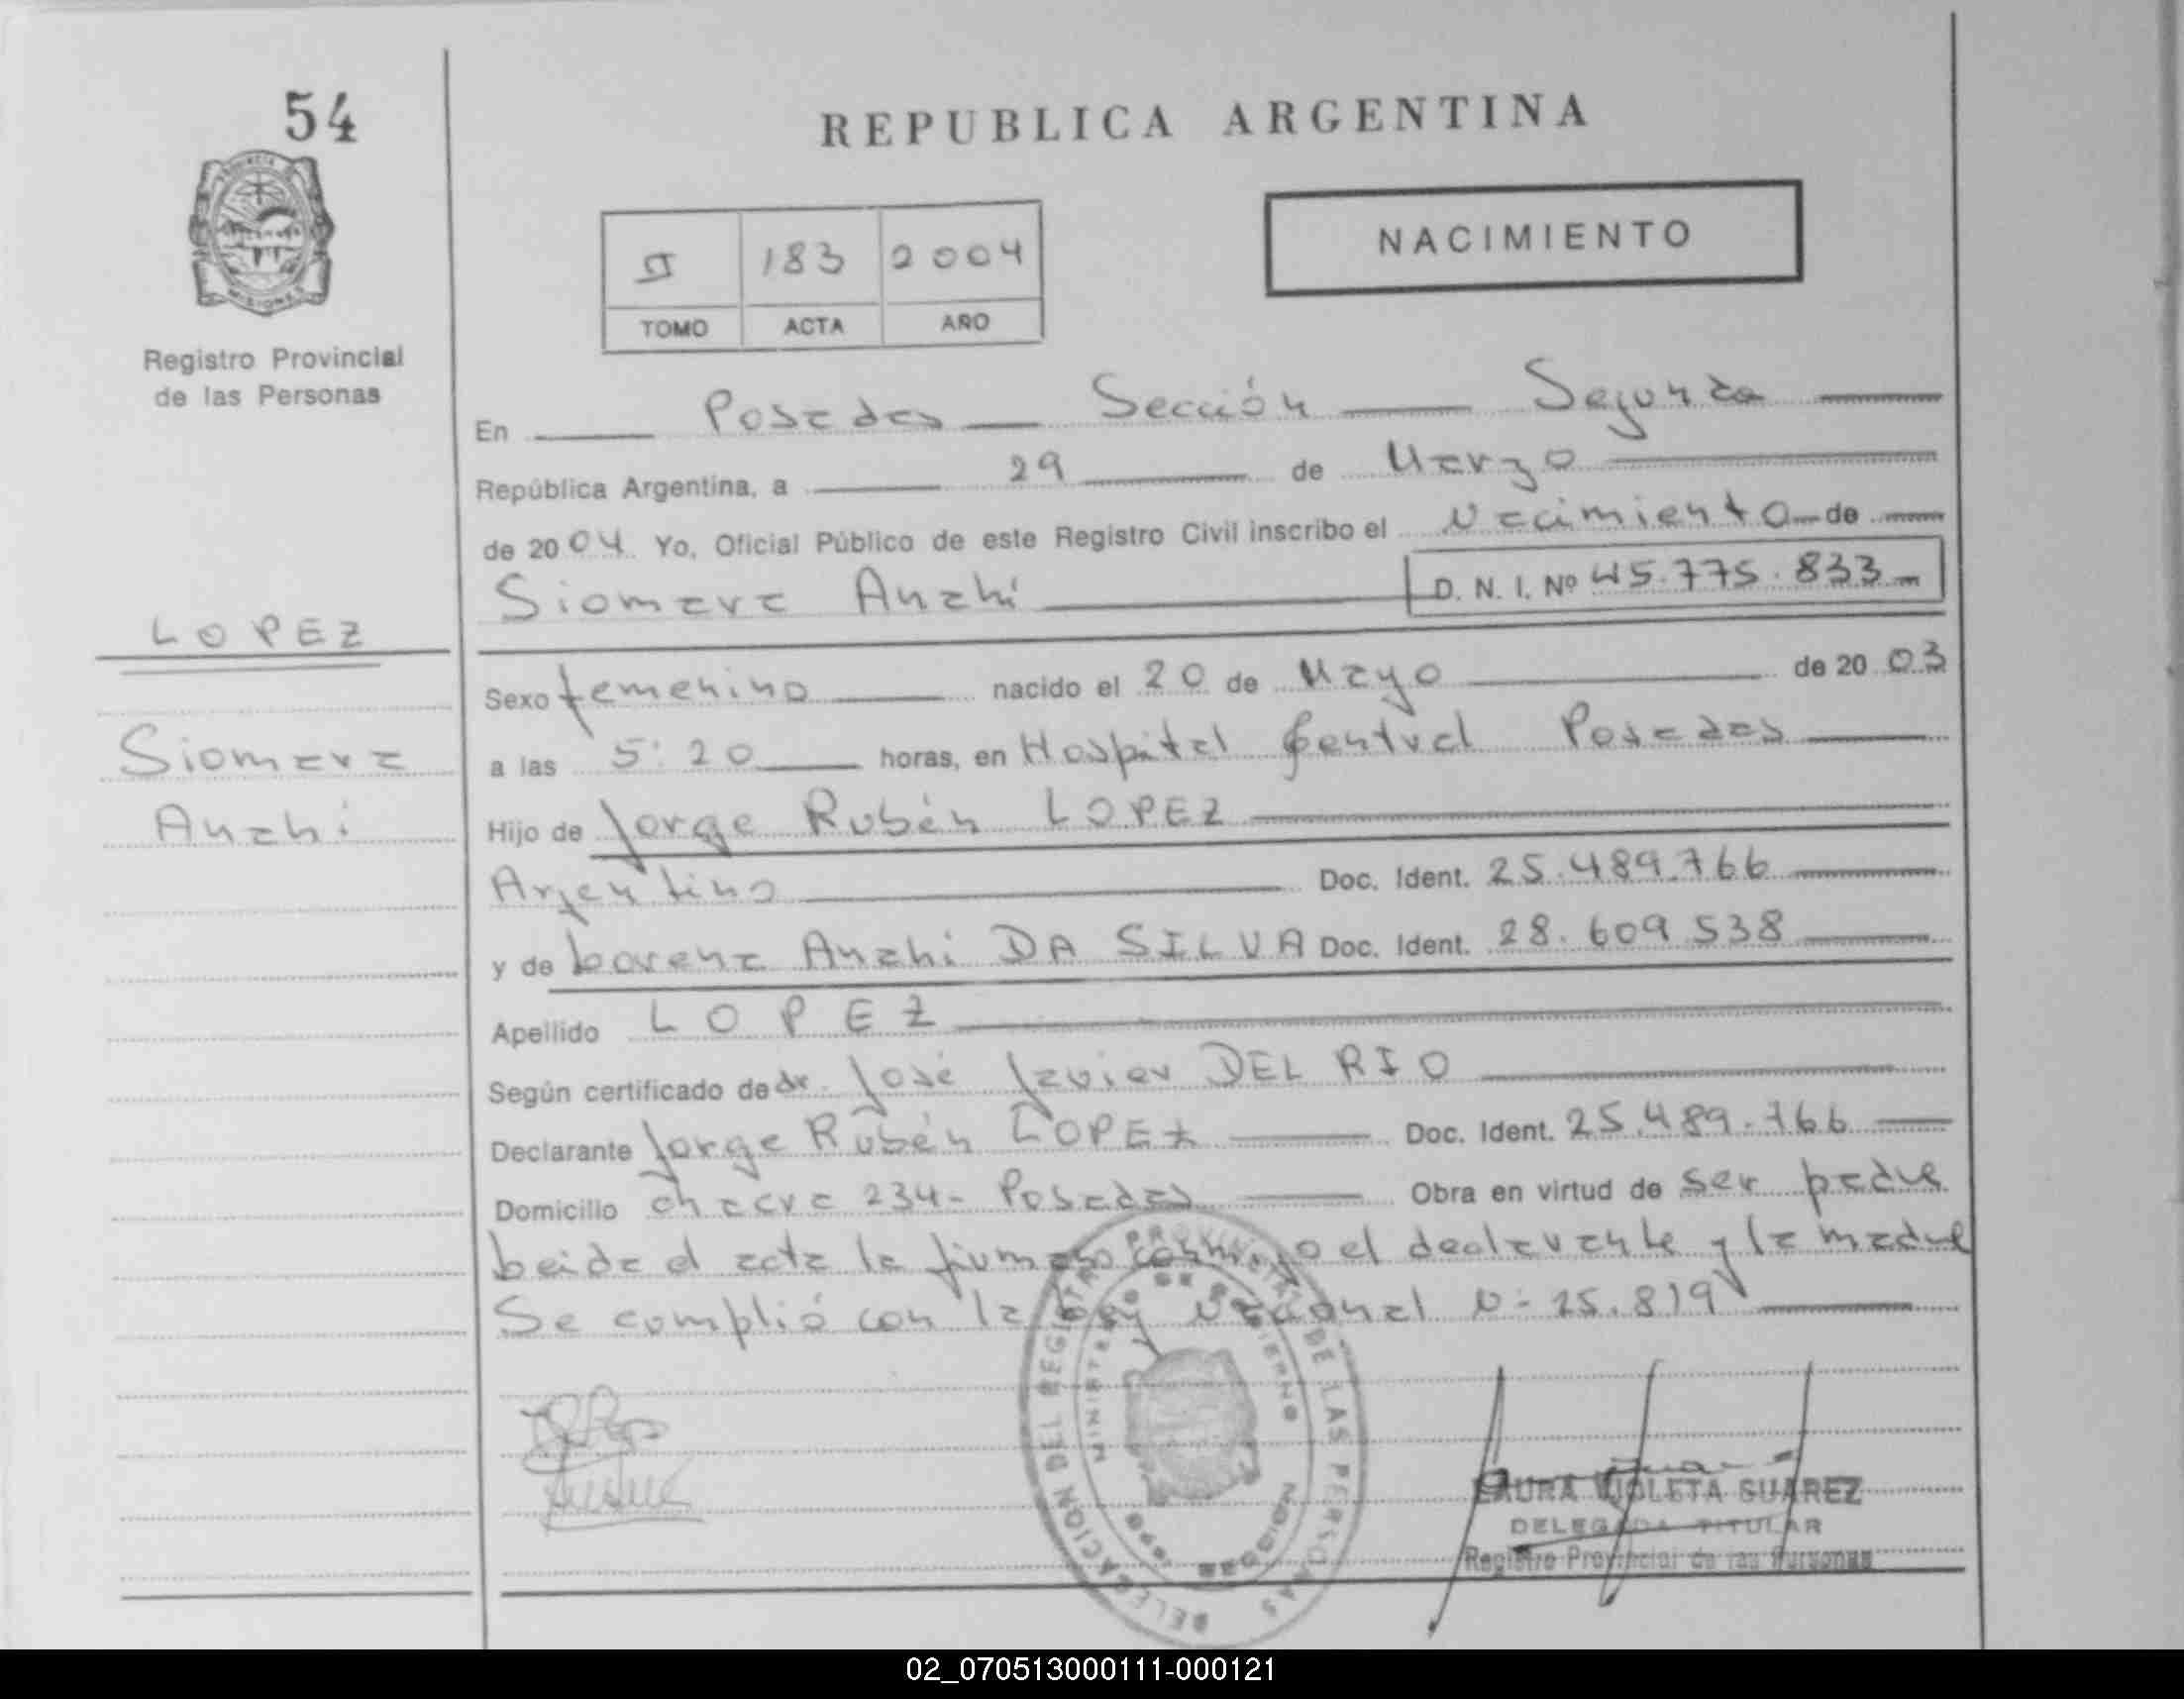 54
REPUBLICA ARGENTINA
PROVINCIA
MISIONES
Registro Provincial
de las Personas
II 183 2004
TOMO ACTA AÑO
NACIMIENTO
En Posadas Sección Segunda
República Argentina, a 29 de Marzo
de 2004 Yo, Oficial Público de este Registro Civil inscribo el Nacimiento de
Siomara Anahi D. N. I. Nº 45.775.833
LOPEZ
Siomara
Anahi
Sexo femenino nacido el 20 de Mayo de 2003
a las 5:20 horas, en Hospital Central Posadas
Hijo de Jorge Rubén LOPEZ
Argentino Doc. Ident. 25.489.766
y de Lorena Anahi DA SILVA Doc. Ident. 28.609.538
Apellido LOPEZ
Según certificado de dr. José Javier DEL RIO
Declarante Jorge Rubén LOPEZ Doc. Ident. 25.489.766
Domicilio chacra 234- Posadas Obra en virtud de ser padre
Leida el acta la firman conmigo el declarante y la madre
Se complió con la Ley Nacional N- 25.819
DELEGACION DEL REGISTRO PROVINCIAL DE LAS PERSONAS
MINISTERIO DE GOBIERNO
MISIONES
LAURA VIOLETA SUAREZ
DELEGADA TITULAR
Registro Provincial de las Personas
02_070513000111-000121